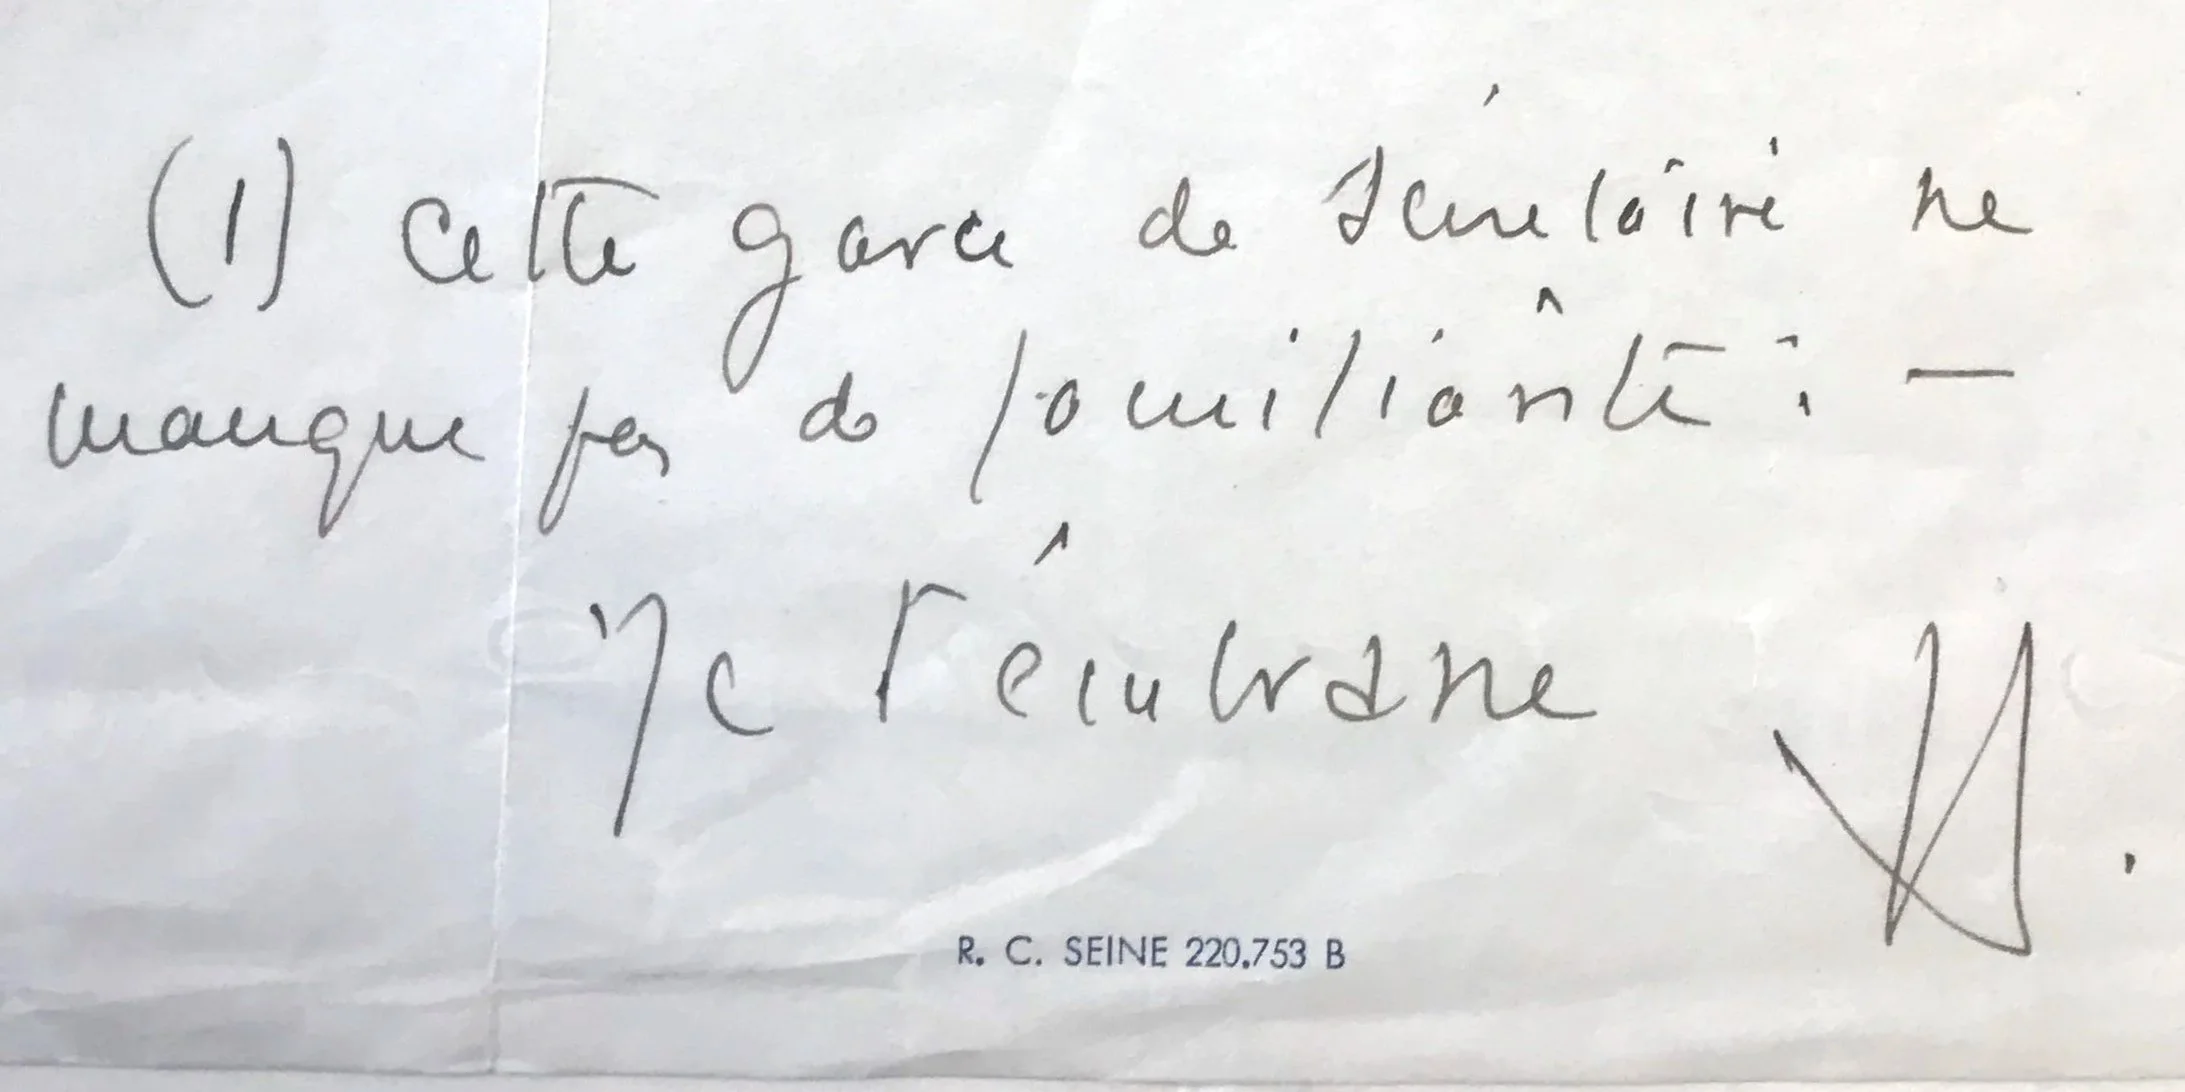 (1) Cette garce de secrétaire ne
manque pas de familiarité ! —
Je t'embrasse
R. C. SEINE 220.753 B